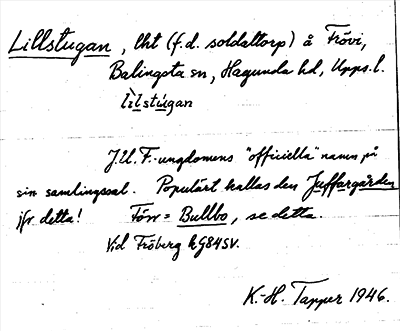 Lillstugan, lht (f.d. soldattorp) å Frövi,
Balingsta sn, Hagunda hd, Upps. l.
lìlstúgan
J.U.F.-ungdomens "officiella" namn på
sin samlingssal. Populärt kallas den Juffargården
jfr detta! Förr = Bullbo, se detta.
Vid Fröberg kG84SV.
K.-H. Tapper 1946.